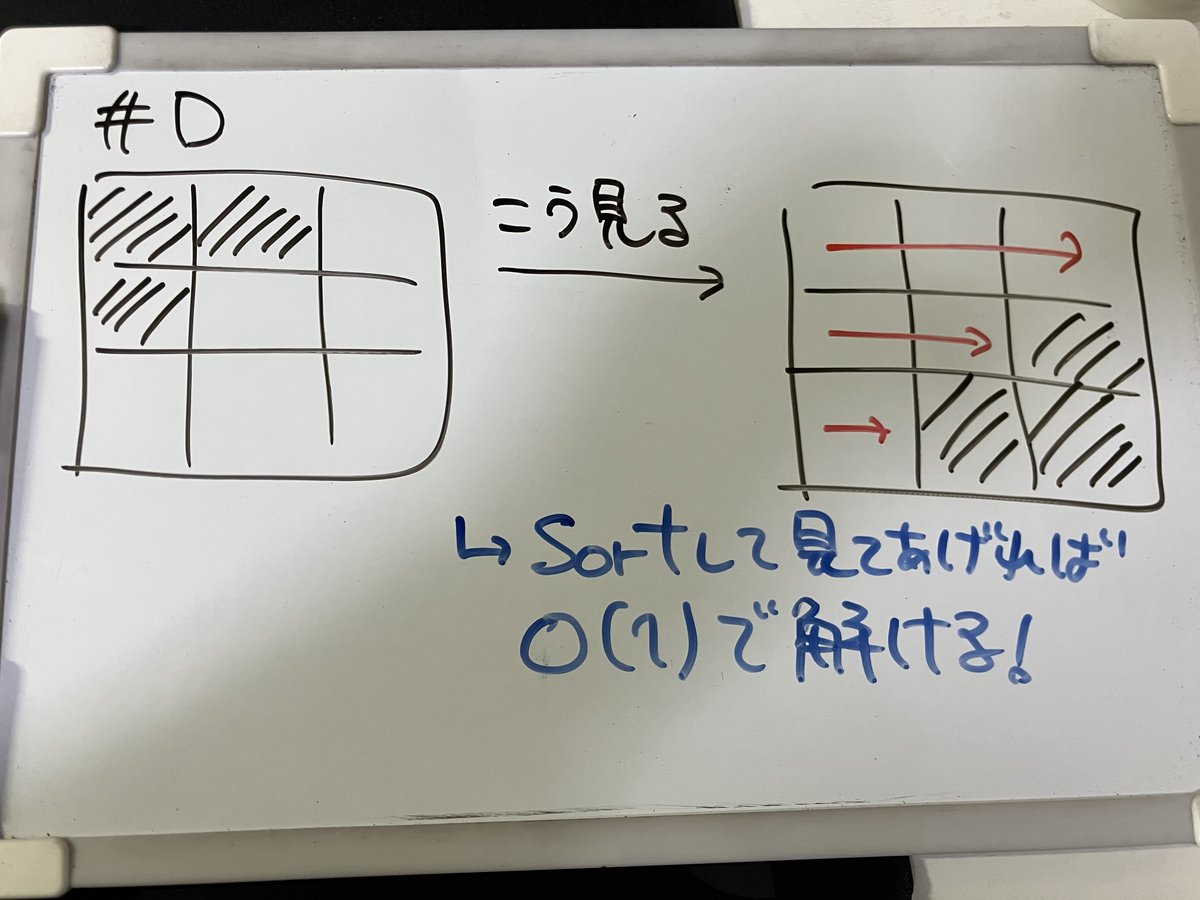 #D
こう見る
↳ Sortして見てあげれば
O(1)で解ける!